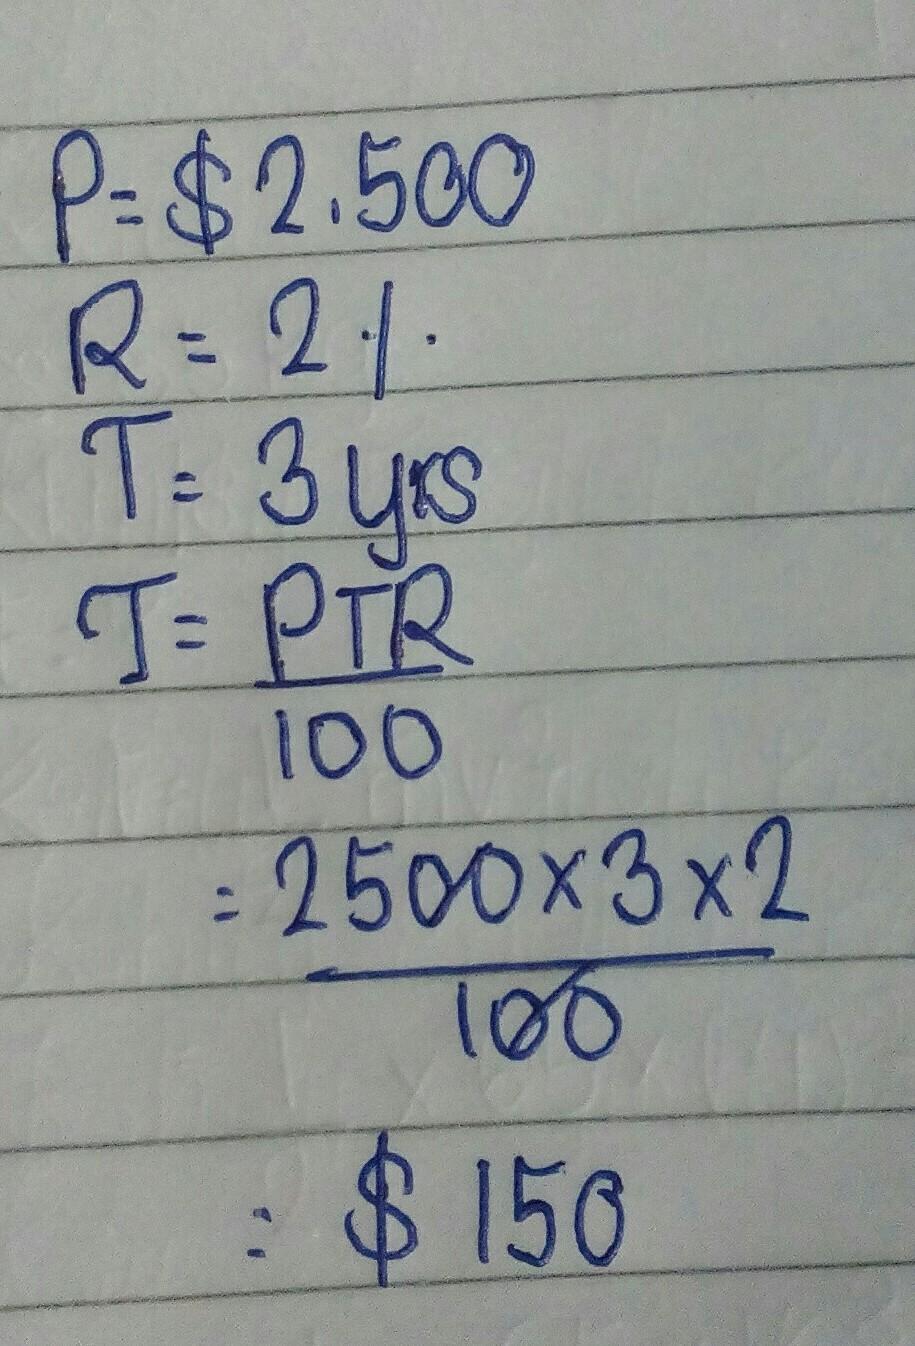 P=$2.500
R = 2%
T= 3yrs
I= PTR
100
=2500x3x2
100
= $ 150